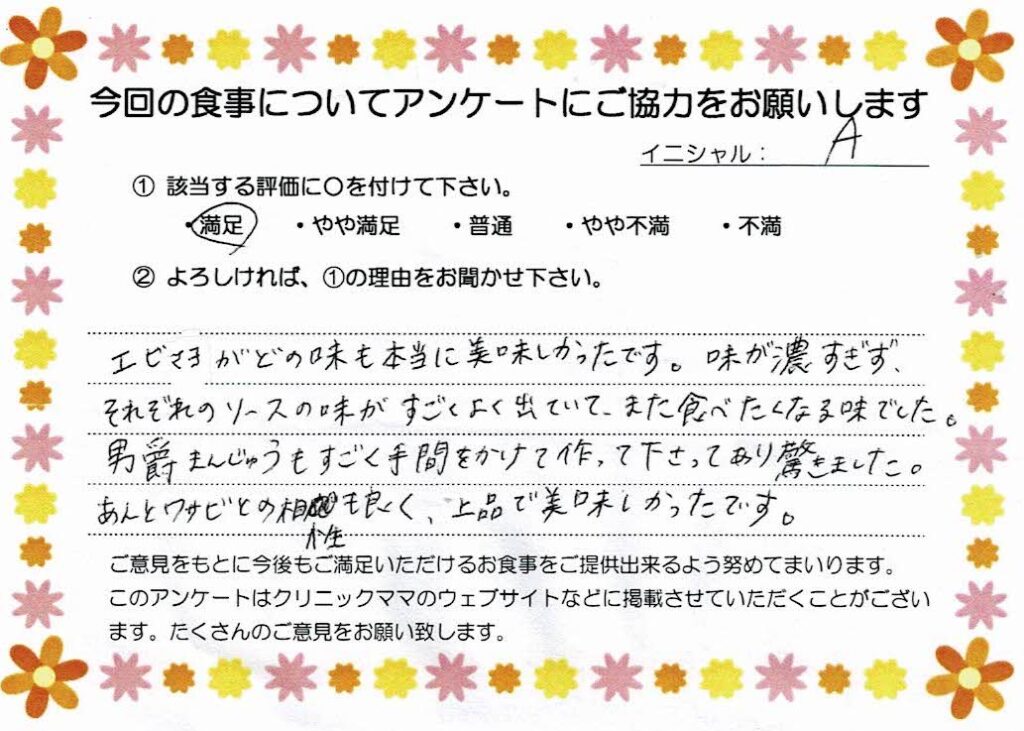 今回の食事についてアンケートにご協力をお願いします
イニシャル： A
① 該当する評価に〇を付けて下さい。
・満足 ・やや満足 ・普通 ・やや不満 ・不満
② よろしければ、①の理由をお聞かせ下さい。
エビマヨがどの味も本当に美味しかったです。味が濃すぎず、
それぞれのソースの味がすごくよく出ていて、また食べたくなる味でした。
男爵まんじゅうもすごく手間をかけて作って下さってあり驚きました。
あんとワサビとの相性も良く、上品で美味しかったです。
ご意見をもとに今後もご満足いただけるお食事をご提供出来るよう努めてまいります。
このアンケートはクリニックママのウェブサイトなどに掲載させていただくことがござい
ます。たくさんのご意見をお願い致します。